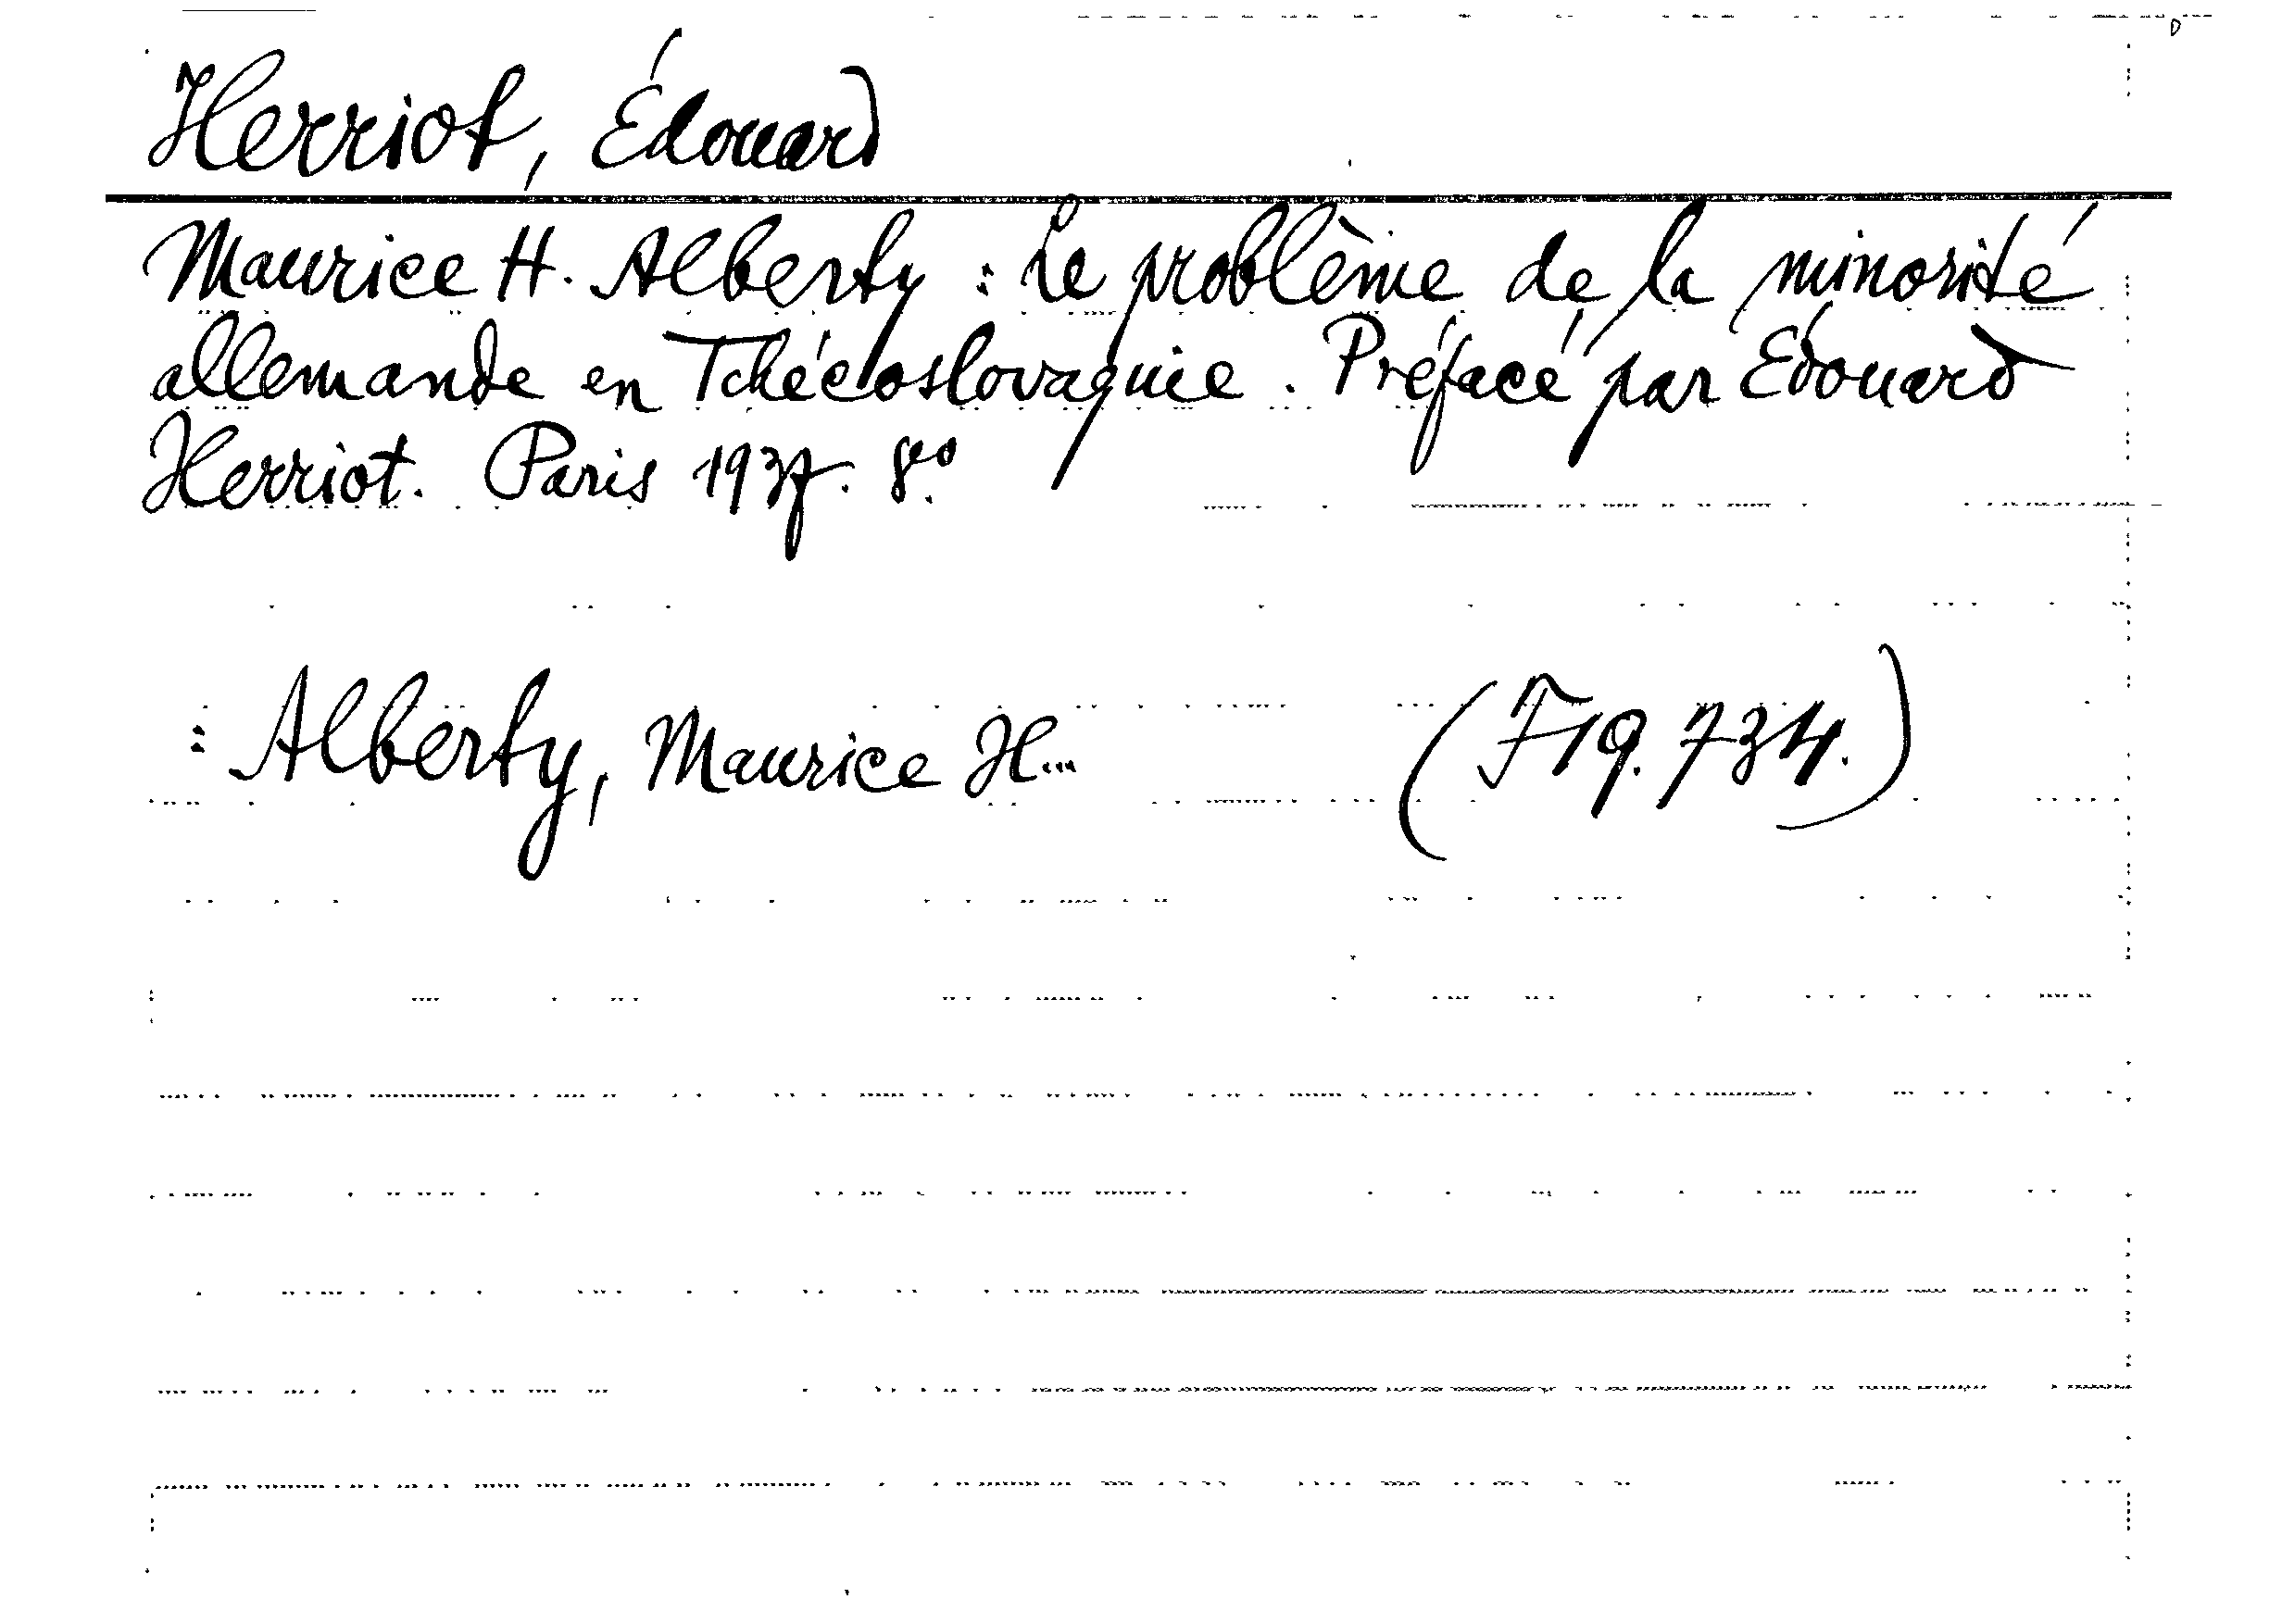 Herriot, Édouard
Maurice H. Alberty : Le problème de la minorité
allemande en Tchécoslovaquie. Préfacé par Édouard
Herriot. Paris 1937. 8º
: Alberty, Maurice H... (F19.734.)